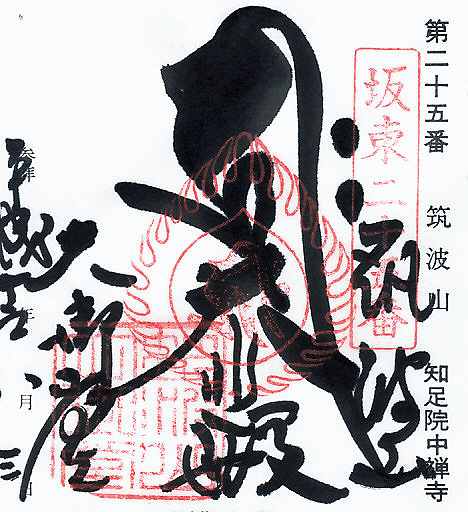 第二十五番 筑波山 知足院中禅寺
坂東二十五番
筑波山
大悲殿
大御堂
参拝
平成 年八月三日